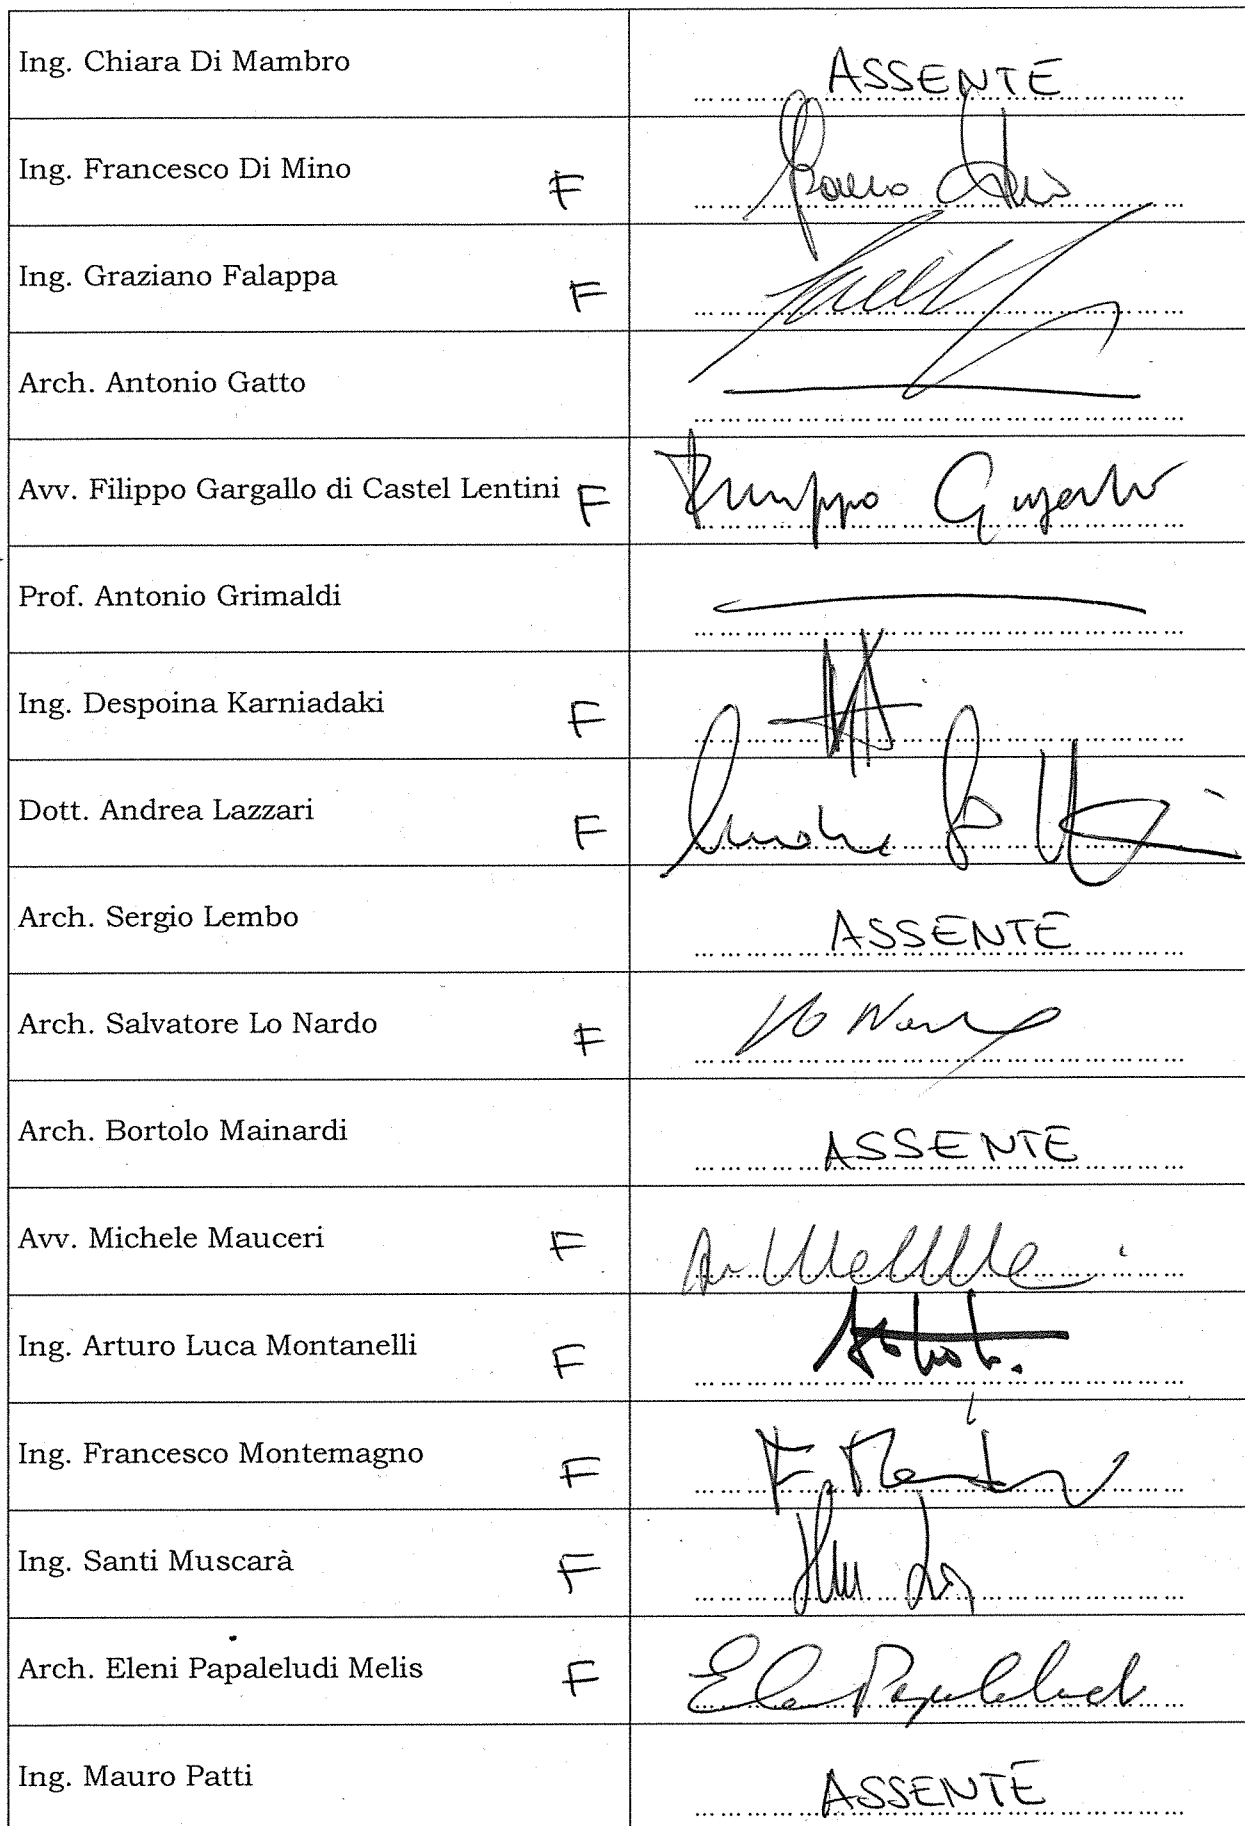 Ing. Chiara Di Mambro ASSENTE
Ing. Francesco Di Mino F
Ing. Graziano Falappa F
Arch. Antonio Gatto
Avv. Filippo Gargallo di Castel Lentini F
Prof. Antonio Grimaldi
Ing. Despoina Karniadaki F
Dott. Andrea Lazzari F
Arch. Sergio Lembo ASSENTE
Arch. Salvatore Lo Nardo F
Arch. Bortolo Mainardi ASSENTE
Avv. Michele Mauceri F
Ing. Arturo Luca Montanelli F
Ing. Francesco Montemagno F
Ing. Santi Muscarà F
Arch. Eleni Papaleludi Melis F
Ing. Mauro Patti ASSENTE